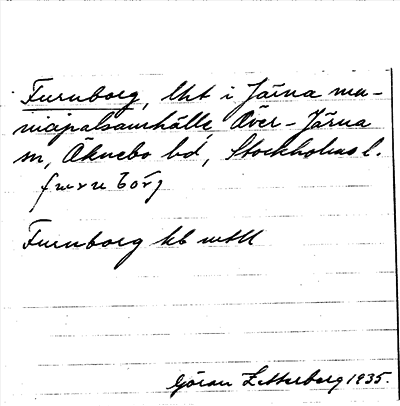 Furuborg, lht i Järna mu-
nicipalsamhälle, Över-Järna
sn, Öknebo hd, Stockholms l.
furubórj
Furuborg kb mtll
Göran Zetterberg 1935.